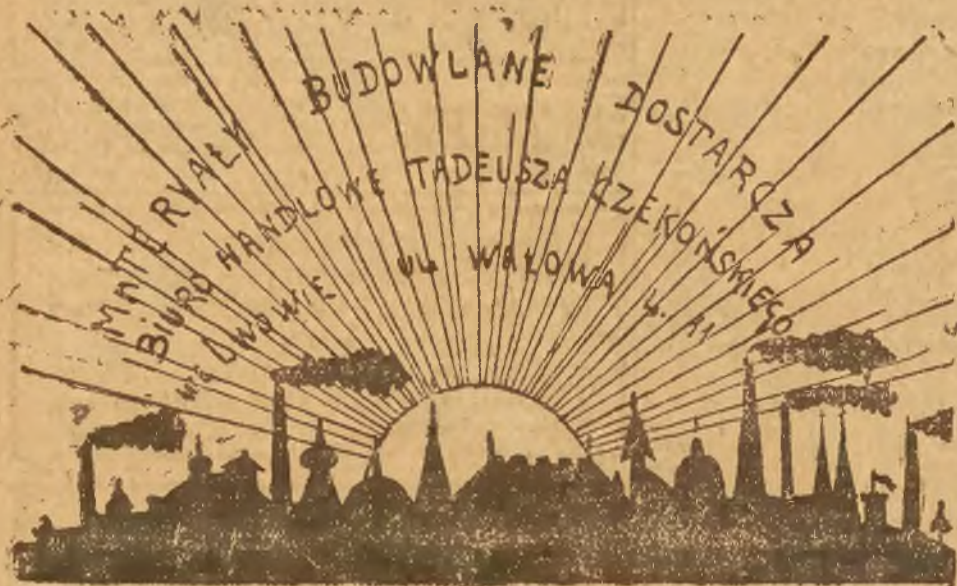 MATERYAŁY BUDOWLANE DOSTARCZA
BIURO HANDLOWE TADEUSZA CZEKOŃSKIEGO
WE LWOWIE UL WAŁOWA L. 11